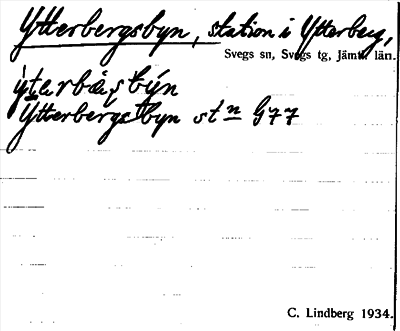 Ytterbergsbyn, station i Ytterberg,
Svegs sn, Svegs tg, Jämtl. län.
ỳtarbæ̀ṣbýn
Ytterbergsbyn stn G77
C. Lindberg 1934.